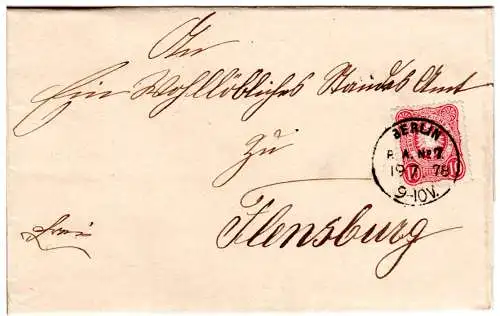 An
Ein Wohllöbliches Standes Amt
zu
Flensburg
frei
BERLIN
P. A. No 7.
19 7 78
9-10V.
10 10